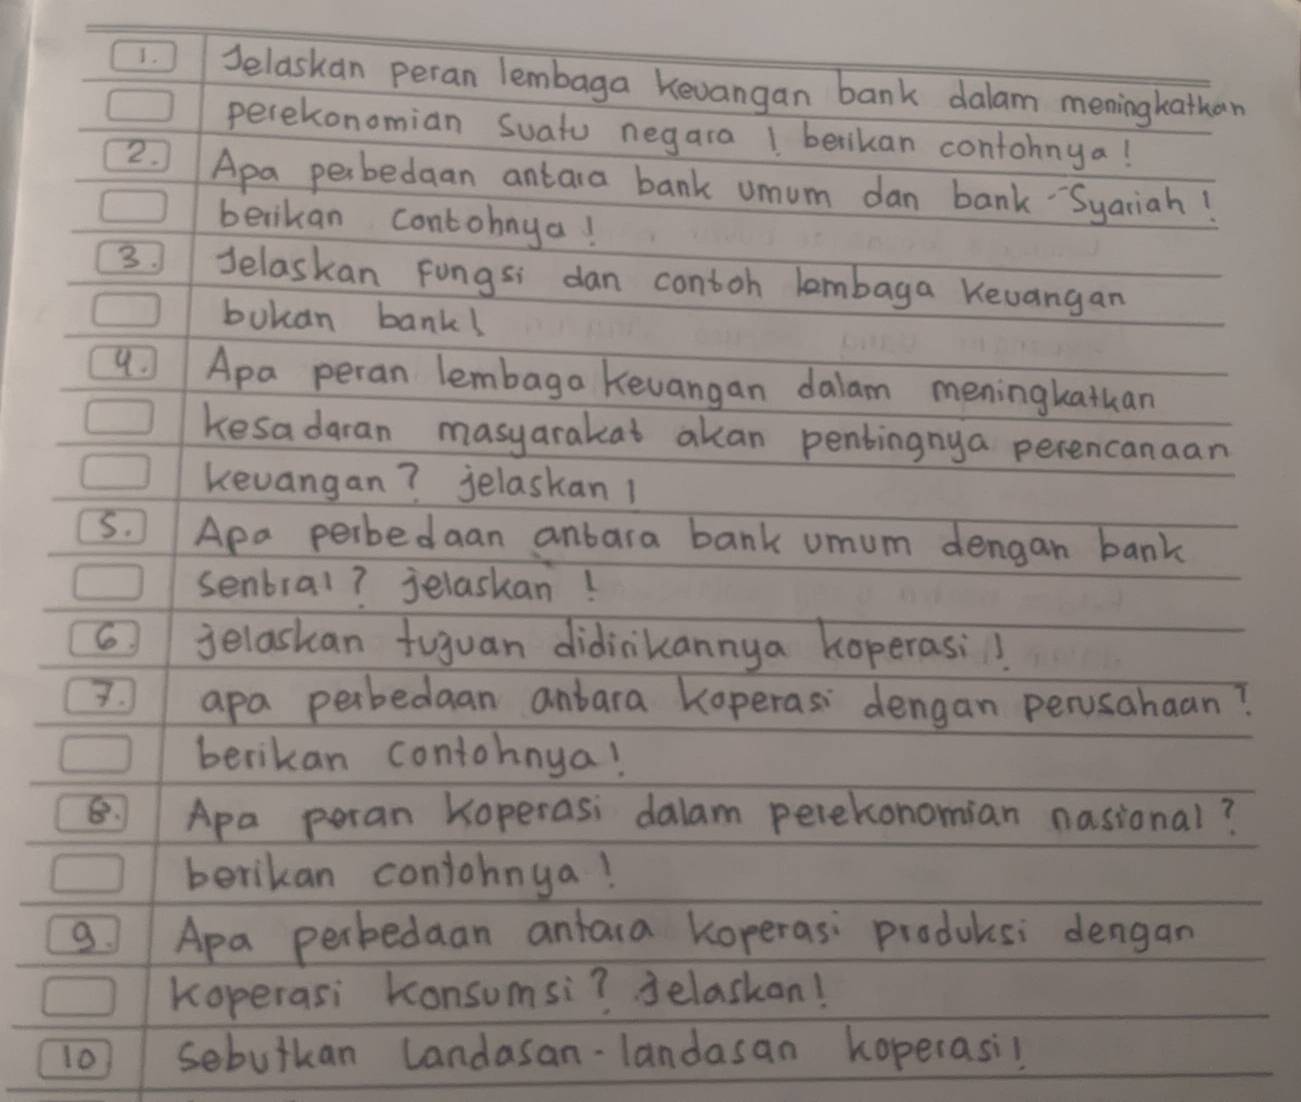 1. Jelaskan peran lembaga keuangan bank dalam meningkatkan
perekonomian suatu negara ! berikan contohnya!
2. Apa perbedaan antara bank umum dan bank Syariah!
berikan contohnya!
3. Jelaskan fungsi dan contoh lembaga keuangan
bukan bank!
4. Apa peran lembaga keuangan dalam meningkatkan
kesadaran masyarakat akan pentingnya perencanaan
keuangan? jelaskan!
5. Apa perbedaan antara bank umum dengan bank
sentral? jelaskan!
6. jelaskan tujuan didirikannya koperasi!
7. apa perbedaan antara koperasi dengan perusahaan?
berikan contohnya!
8. Apa peran koperasi dalam perekonomian nasional?
berikan contohnya!
9. Apa perbedaan antara koperasi produksi dengan
koperasi konsumsi? Jelaskan!
10 Sebutkan Landasan-landasan koperasi!